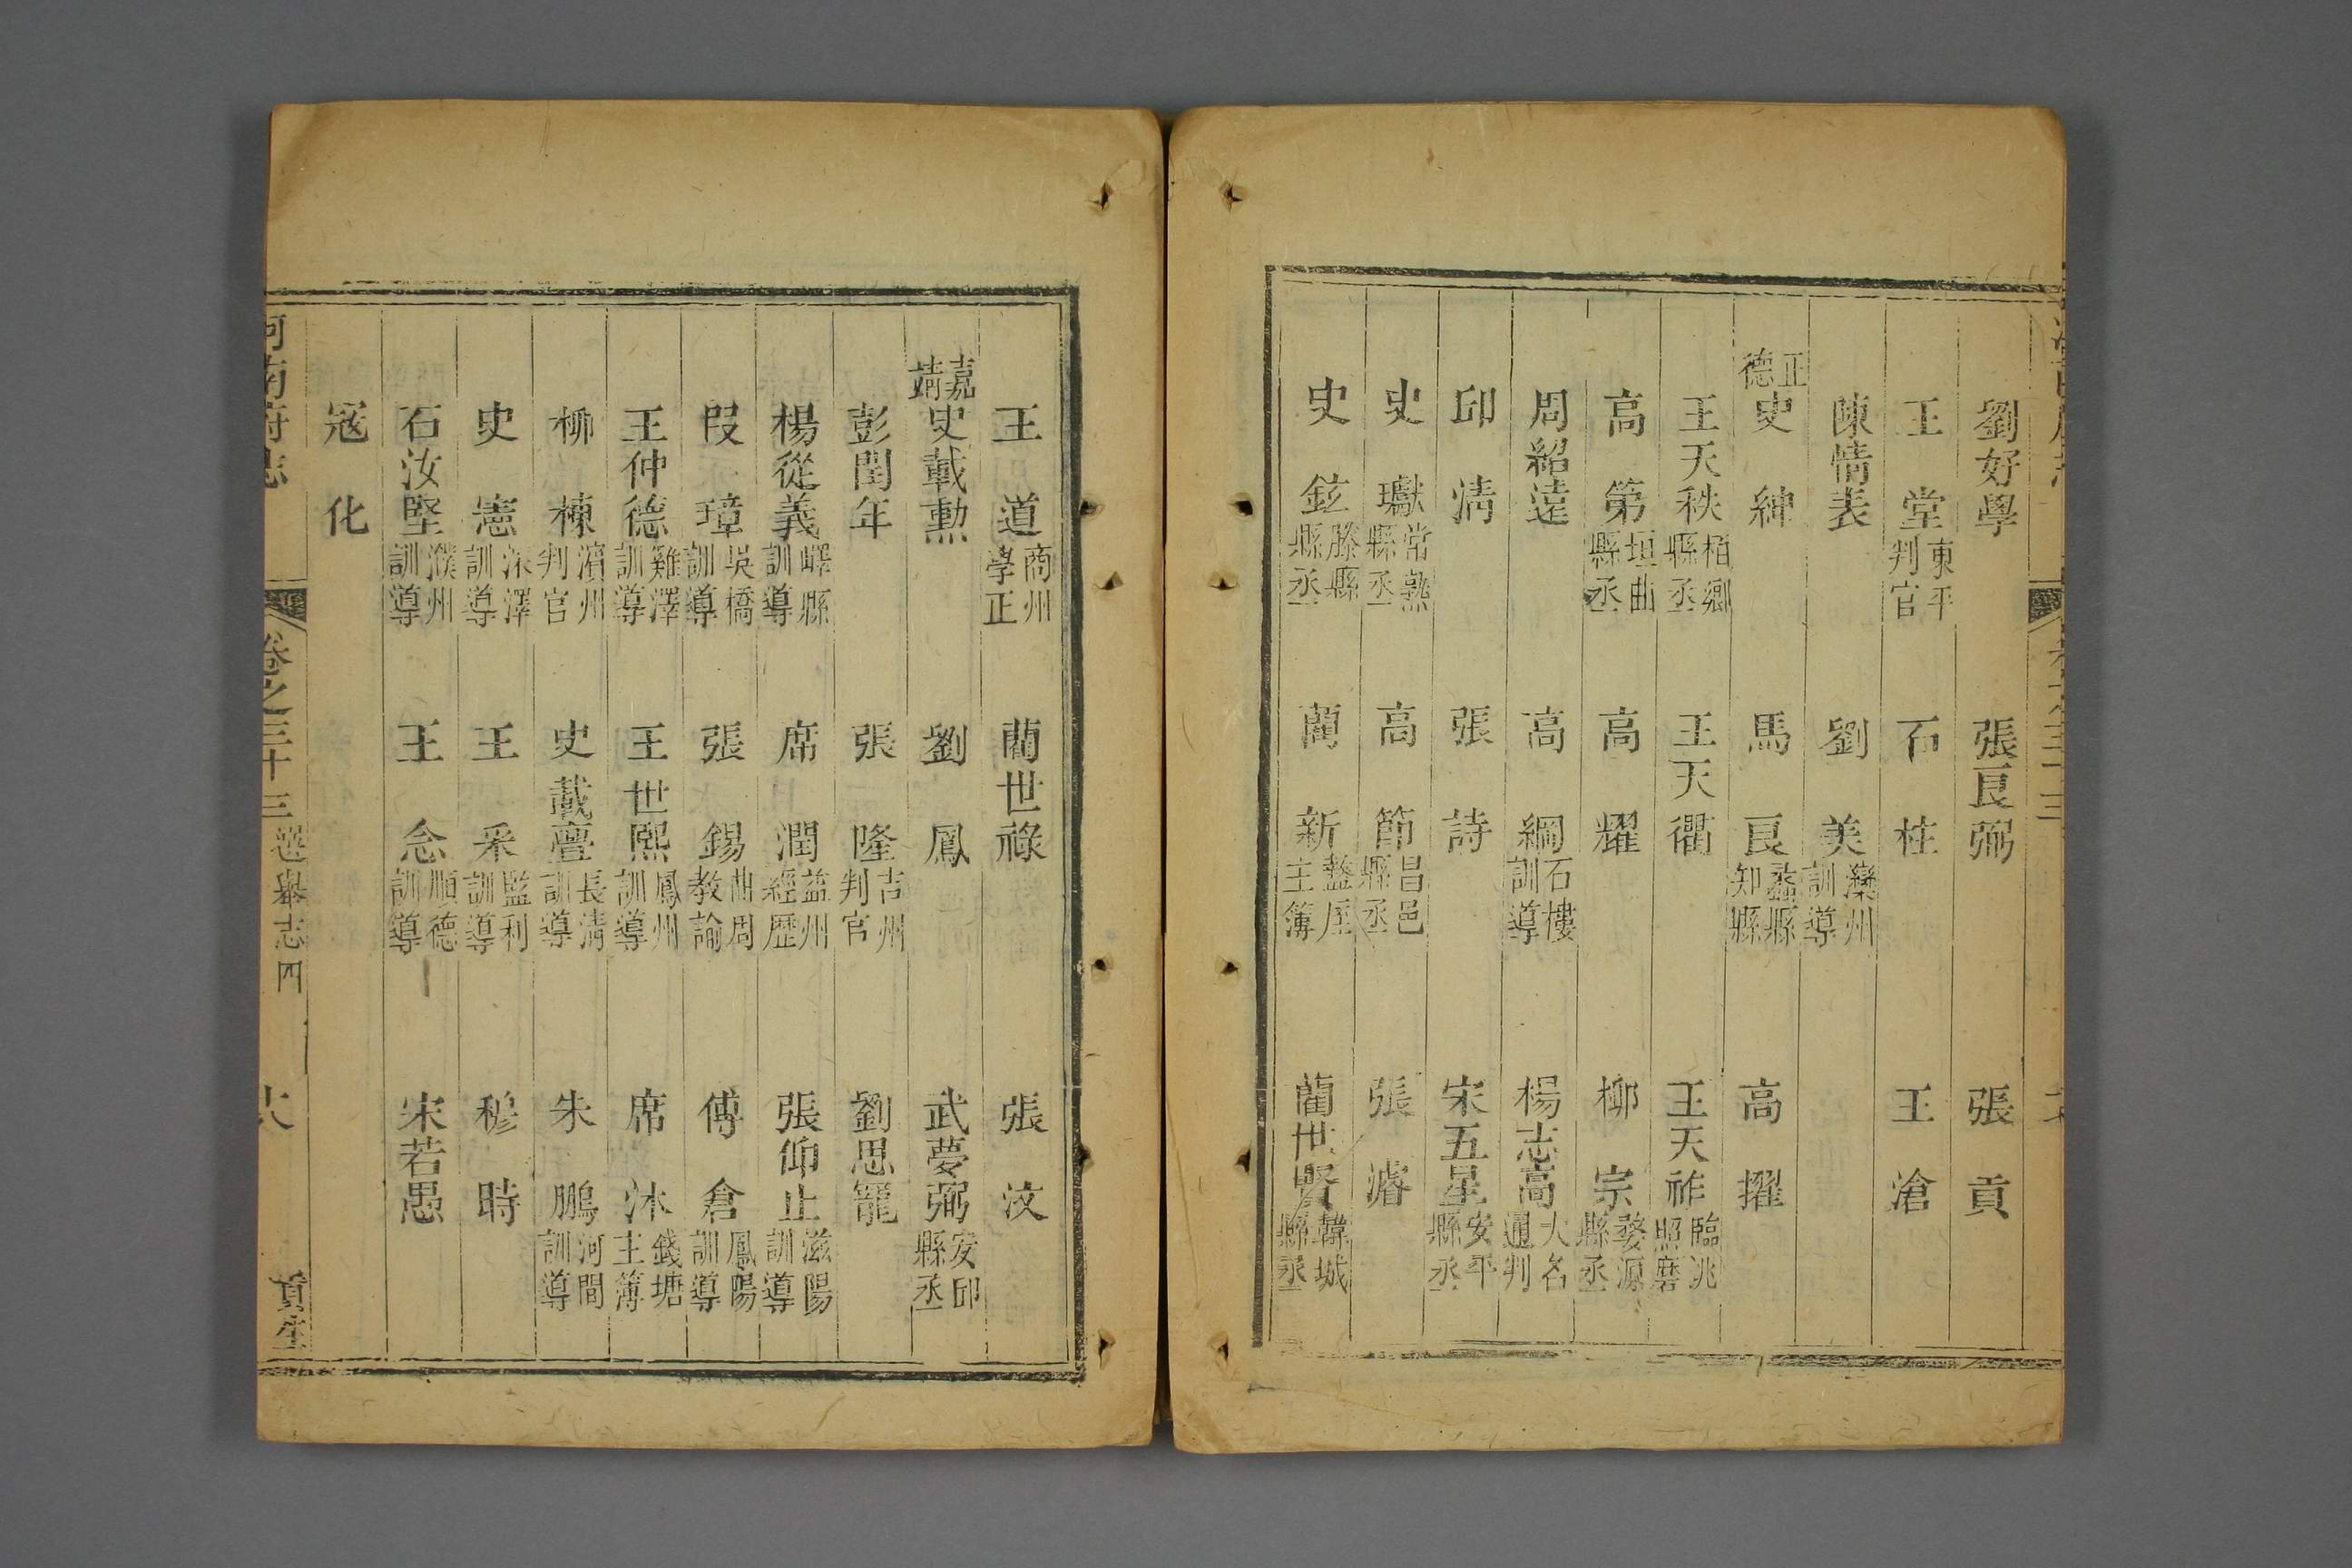 劉好學 張良弼 張貢
王堂東平判官 石柱 王滄
陳情表 劉美灤州訓導
正德史紳 馬良蠡縣知縣 高擢
王天秩栢鄉縣丞 王天衢 王天祚臨洮照磨
高第垣曲縣丞 高耀 柳宗婺源縣丞
周紹遠 高綱石樓訓導 楊志高大名通判
邱淸 張詩 宋五星安平縣丞
史瓛常熟縣丞 高節昌邑縣丞 張濬
史鉉滕縣縣丞 藺新盩厔主簿 藺世賢韓城縣丞
王道商州學正 藺世祿 張汶
嘉靖史載勲 劉鳳 武夢弼安邱縣丞
彭閏年 張隆吉州判官 劉思寵
楊從義嶧縣訓導 席潤益州經歷 張仰止滋陽訓導
段璋吳橋訓導 張錫曲周教諭 傅倉鳳陽訓導
王仲德雞澤訓導 王世熙鳳州訓導 席沐錢塘主簿
柳棟濱州判官 史載亹長淸訓導 朱鵬河間訓導
史憲深澤訓導 王釆監利訓導 穆時
石汝堅濮州訓導 王念順德訓導 宋若愚
寇化
河南府志 卷之三十三 選舉志四 貢生 十八